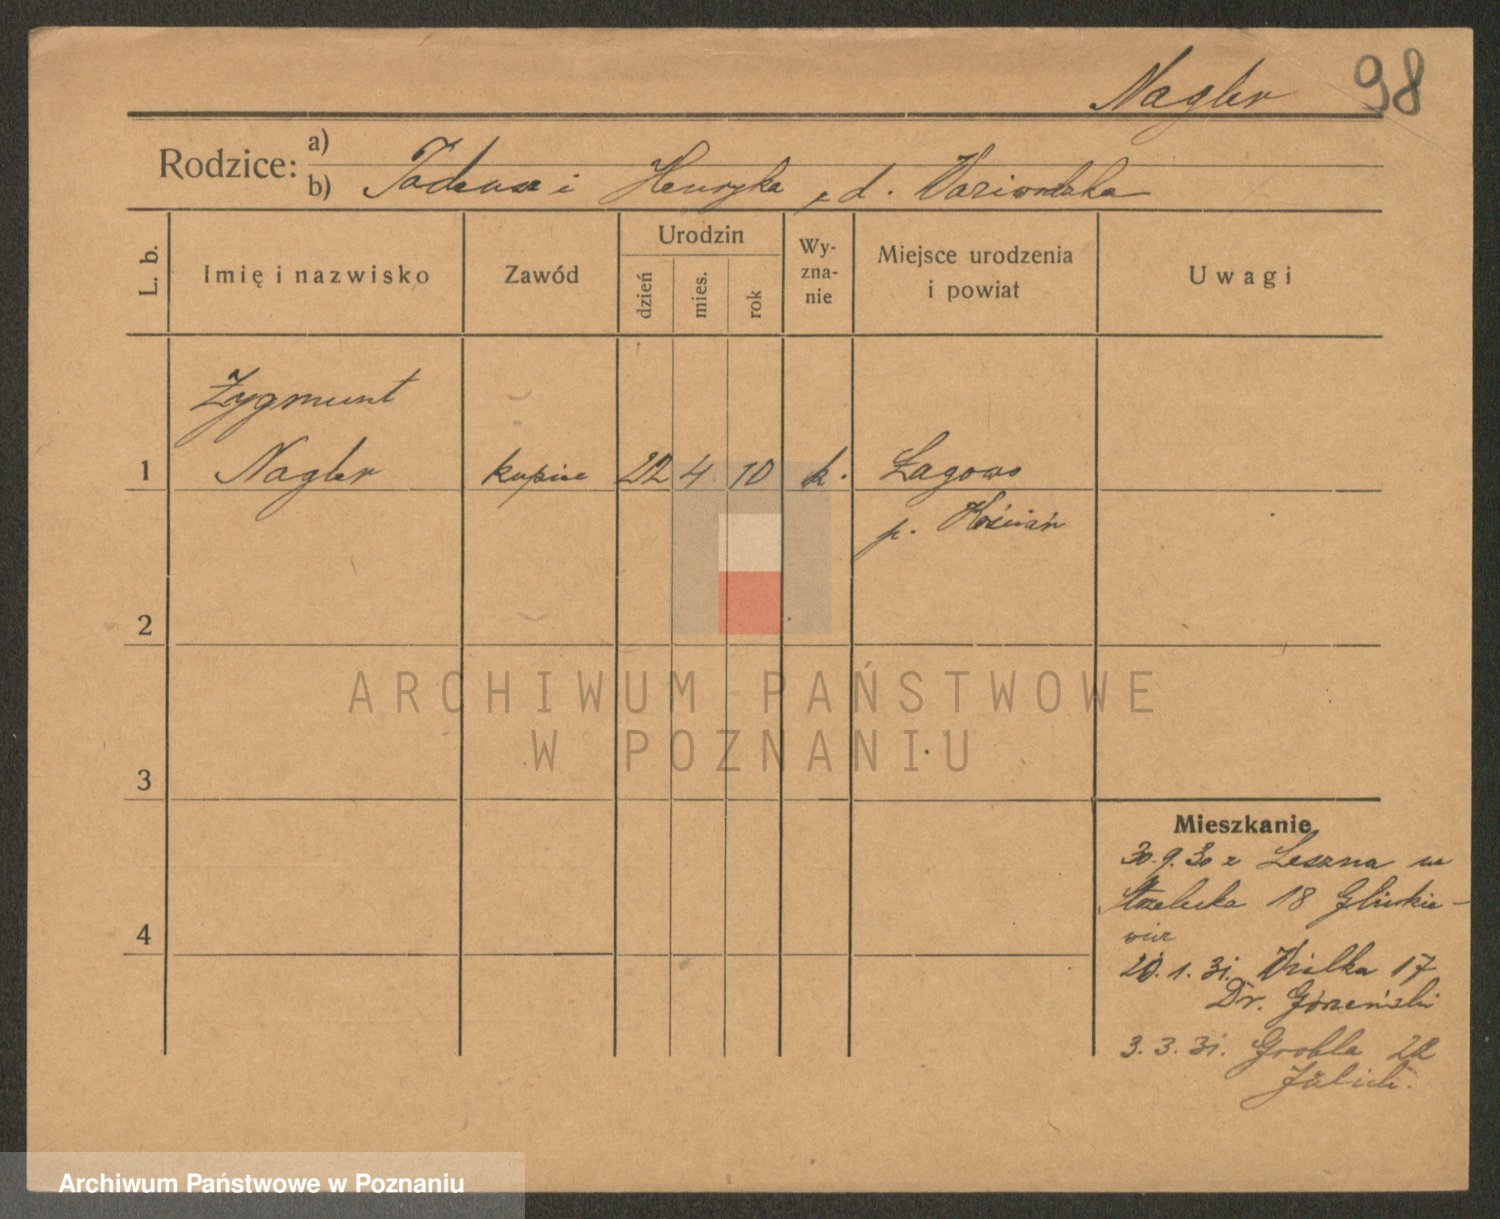 Nagler 98
Rodzice: a)
b) Tadeusz i Henryka z d.
L. b.
Imię i nazwisko
Zawód
Urodzin
dzień
mies.
rok
Wy-
zna-
nie
Miejsce urodzenia
i powiat
Uwagi
Zygmunt
1 Nagler kupiec 22 4 10 k. Łagowo
p. Kościan
2
ARCHIWUM PAŃSTWOWE
W POZNANIU
3
Mieszkanie
30.9.30 z Leszna w
Strzelecka 18 Glinkie-
wicz
4
20.1.31. Wielka 17
Dr. Górzeński
3.3.31. Grobla 22
Archiwum Państwowe w Poznaniu